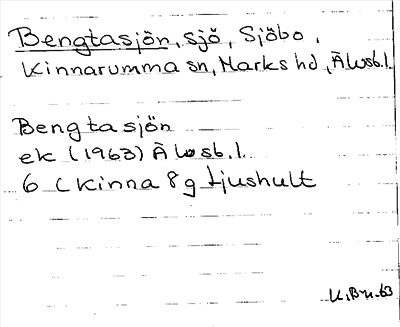 Bengtasjön, sjö, Sjöbo,
Kinnarumma sn, Marks hd, Älvsb.l.
Bengtasjön
ek (1963) Älvsb.l.
6 C Kinna 8 g tjushult
K.Bn.63